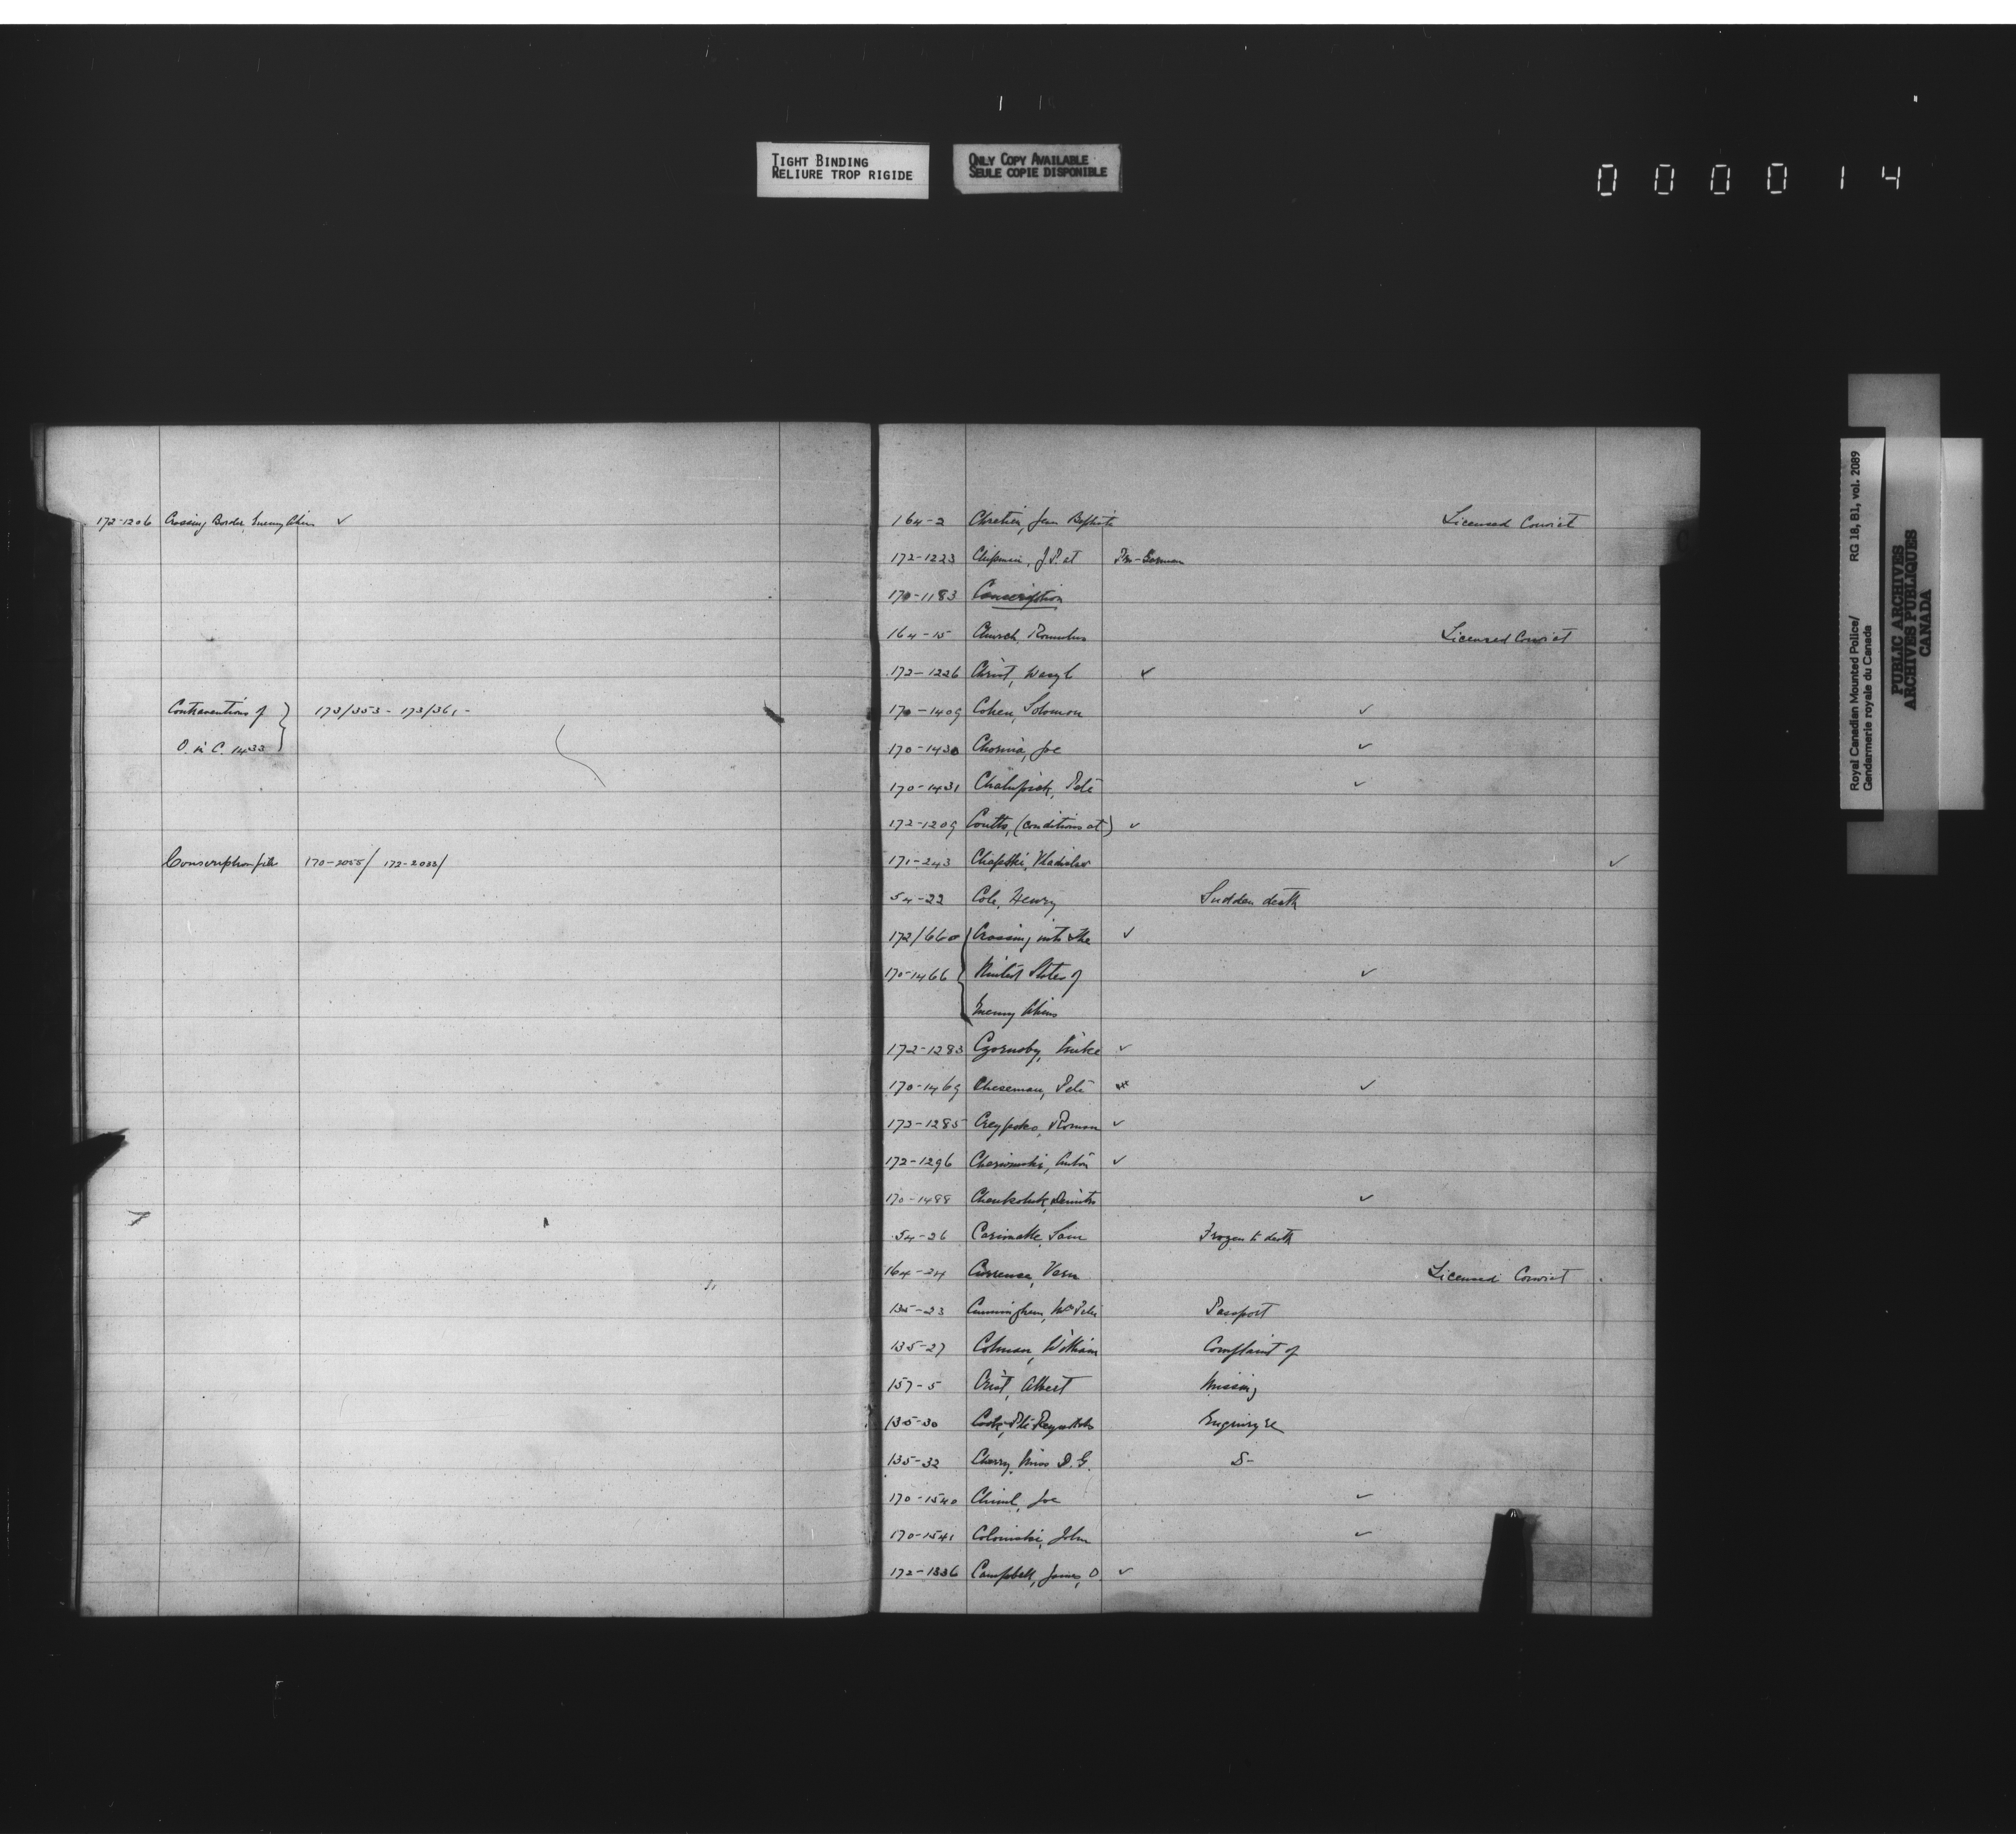 TIGHT BINDING
RELIURE TROP RIGIDE
ONLY COPY AVAILABLE
SEULE COPIE DISPONIBLE
000014
172-1206 Crossing Border, Enemy Aliens ✓
Contraventions of } 173/353 - 173/361 -
O. in C. 1433
Conscription file 170-2055/ 172-2033/
164-2 Chretien, Jean Baptiste Licensed Convict
172-1223 Chipman, J.P. at Pro-German
170-1183 Conscription
164-15 Church, Romulus Licensed Convict
172-1226 Christ, Wasyl ✓
170-1409 Cohen, Solomon ✓
170-1430 Joe ✓
170-1431 Pete ✓
172-1209 Coutts, (conditions at) ✓
171-243 ✓
54-22 Cole, Henry Sudden death
172/660 { Crossing into the ✓
170-1466 United States of ✓
Enemy Aliens
172-1283 Czornoby, Mike ✓
170-1469 Cheseman, Pete ✓
172-1285 Roman ✓
172-1296 Anton ✓
170-1488 ✓
54-26 Sam Frozen to death
164-24 Licensed Convict
135-23 Cunningham, Passport
135-27 Colman, William Complaint of
157-5 Crist, Albert Missing
135-30 Cook, Pte Enquiry re
135-32 Cherry, Miss D.G. D-
170-1540 Joe ✓
170-1541 John ✓
172-1336 Campbell, James, O ✓
Royal Canadian Mounted Police/ RG 18, B1, vol. 2089
Gendarmerie royale du Canada
PUBLIC ARCHIVES
ARCHIVES PUBLIQUES
CANADA